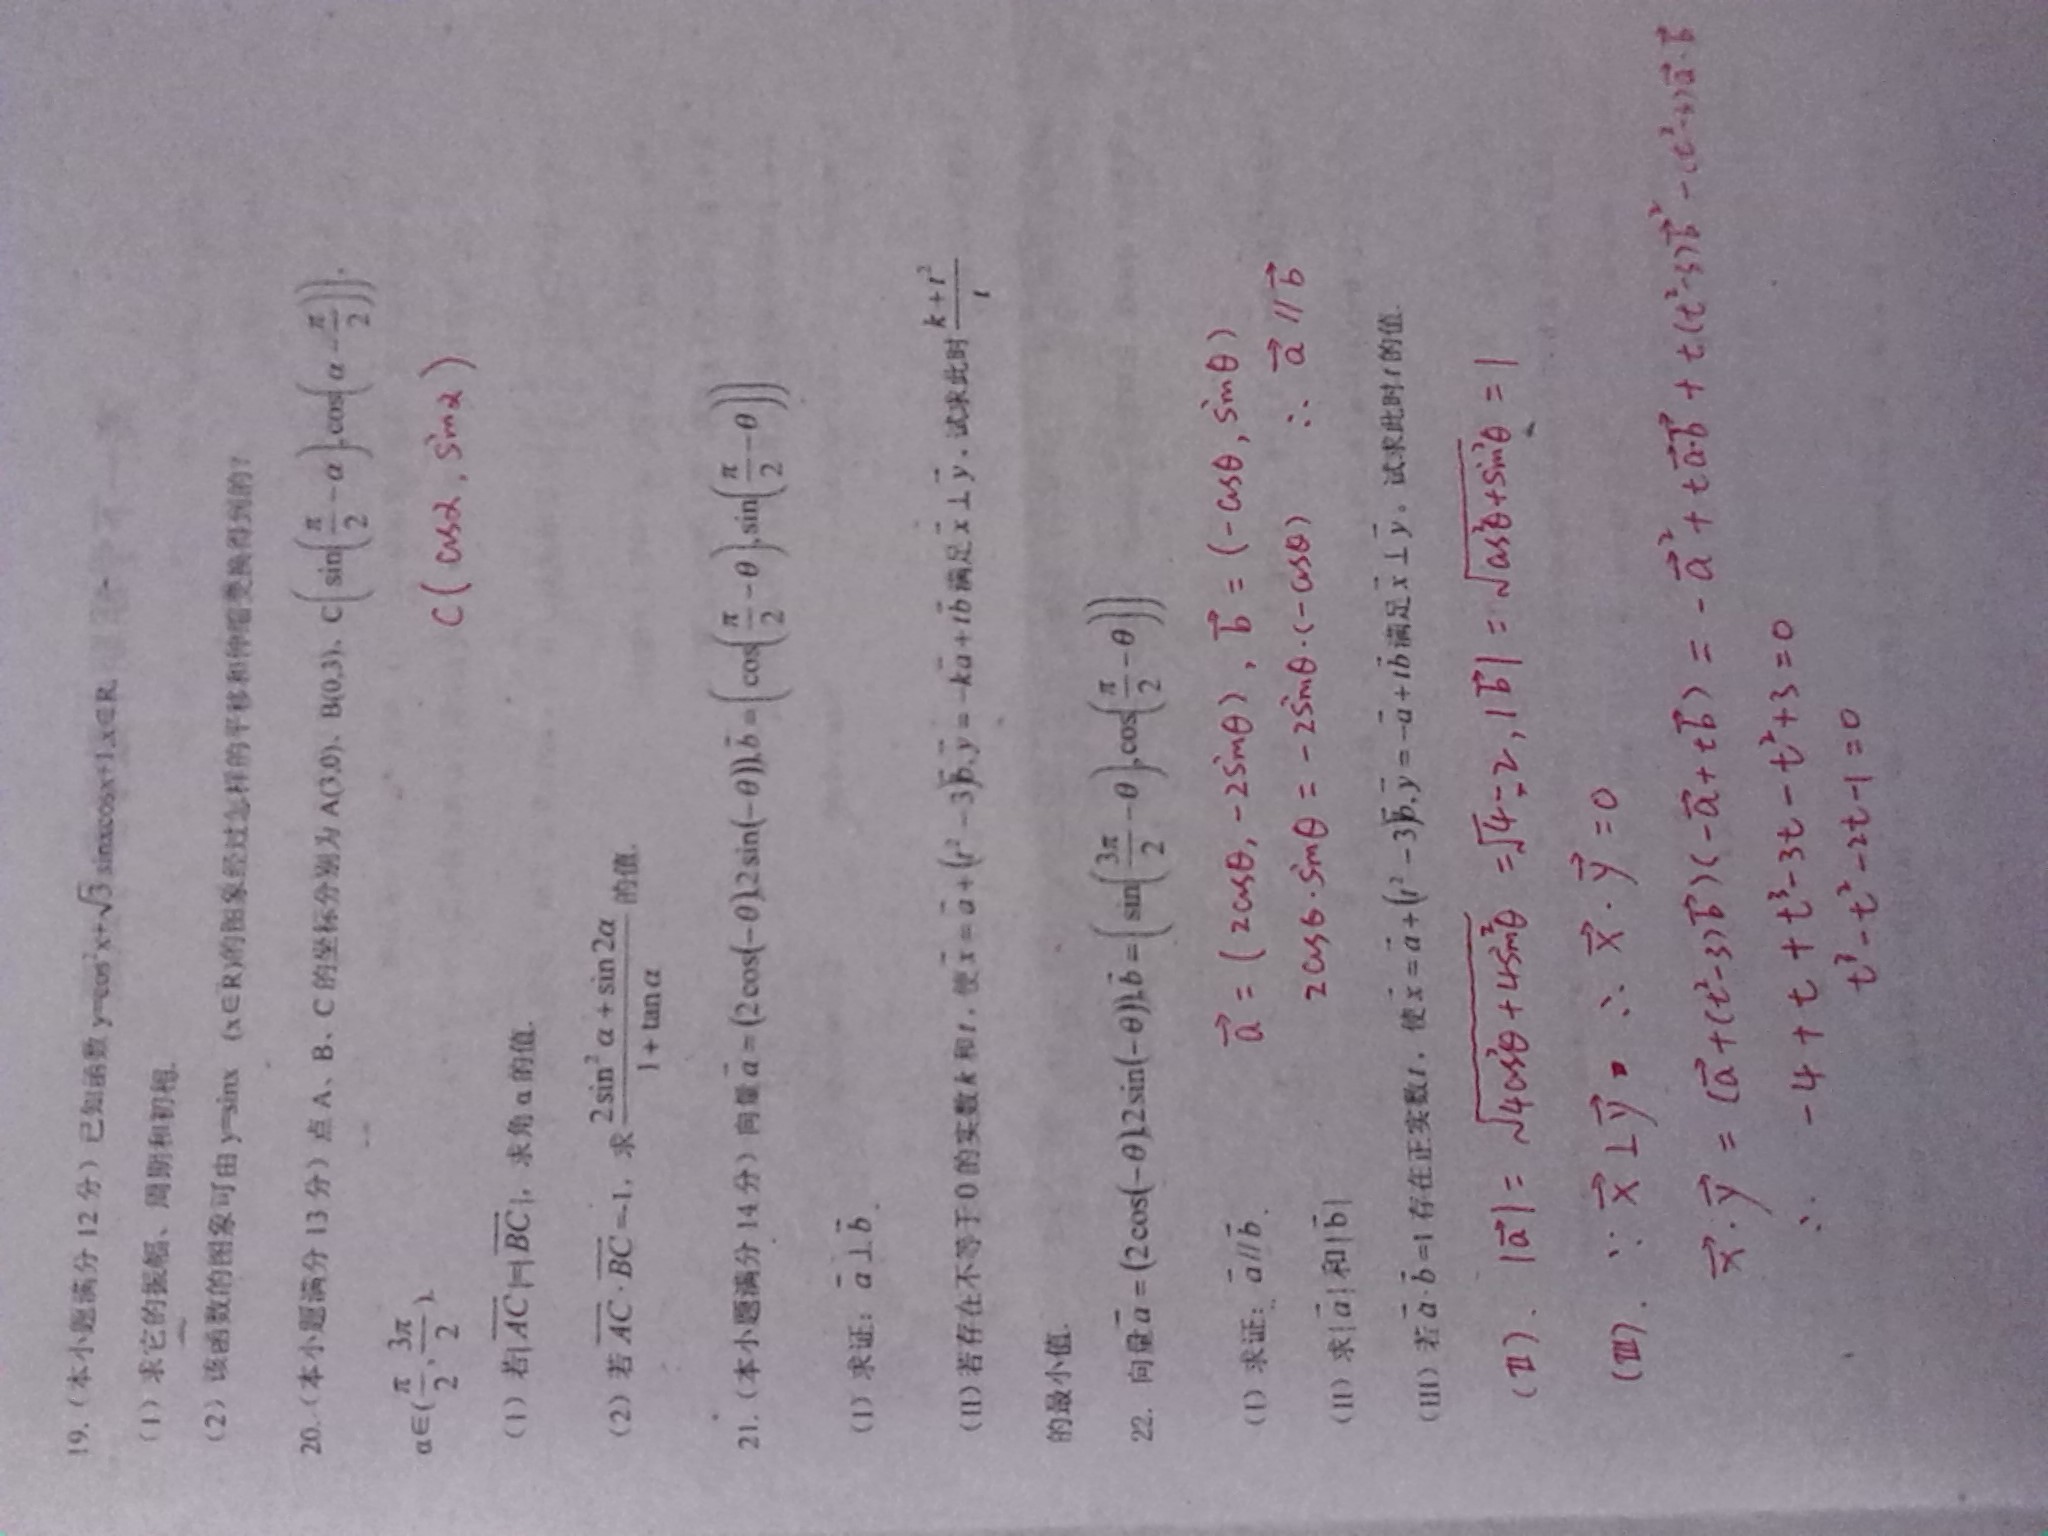 19.（本小题满分12分）已知函数 y=cos²x+√3 sinxcosx+1,x∈R.
（1）求它的振幅、周期和初相.
（2）该函数的图象可由 y=sinx （x∈R)的图象经过怎样的平移和伸缩变换得到的?
20.（本小题满分13分）点 A、B、C 的坐标分别为 A(3,0)、B(0,3)、C(sin(π/2-α),cos(α-π/2)),
α∈(π/2,3π/2).
C(cosα, sinα)
（1）若|AC|=|BC|，求角α的值.
（2）若 AC·BC=-1，求 (2sin²α+sin2α)/(1+tanα) 的值.
21.（本小题满分14分）向量 a=(2cos(-θ),2sin(-θ)),b=(cos(π/2-θ),sin(π/2-θ))
（I）求证：a⊥b.
（II)若存在不等于0的实数k和t，使 x=a+(t²-3)b,y=-ka+tb 满足 x⊥y。试求此时 (k+t²)/t
的最小值.
22. 向量 a=(2cos(-θ),2sin(-θ)),b=(sin(3π/2-θ),cos(π/2-θ))
a⃗=(2cosθ,-2sinθ), b⃗=(-cosθ, sinθ)
（I）求证：a//b.
2cosθ·sinθ=-2sinθ·(-cosθ) ∴ a⃗//b⃗
（II）求|a|和|b|
（III）若 a·b=1 存在正实数t，使 x=a+(t²-3)b,y=-a+tb 满足 x⊥y。试求此时t的值.
(II). |a⃗|=√4cos²θ+4sin²θ=√4=2, |b⃗|=√cos²θ+sin²θ=1
(III). ∵ x⃗⊥y⃗ ∴ x⃗·y⃗=0
x⃗·y⃗=(a⃗+(t²-3)b⃗)(-a⃗+tb⃗)=-a⃗²+ta⃗·b⃗+t(t²-3)b⃗²-(t²-3)a⃗·b⃗
∴ -4+t+t³-3t-t²+3=0
t³-t²-2t-1=0